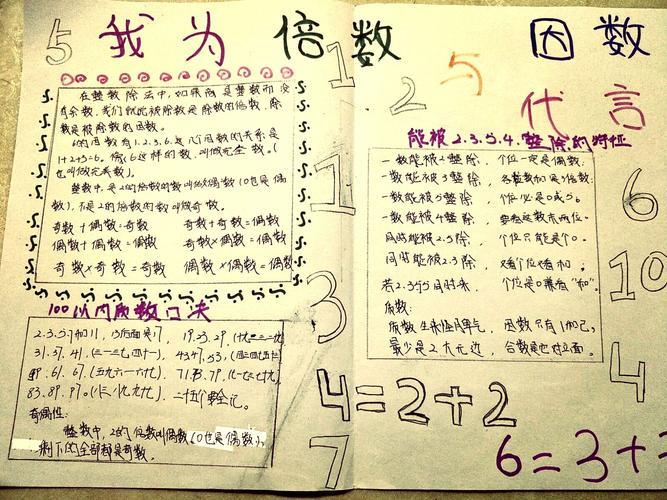 我为倍数 因数
代言
5
1
2
5
在整数除法中，如果商是整数而没
有余数，我们就说被除数是除数的倍数，除
数是被除数的因数。
6的因数有1.2.3.6.这几个因数的关系是
1+2+3=6。像6这样的数，叫做完全数。(
也叫做完美数)。
整数中，是2的倍数的数叫做偶数(0也是偶
数)，不是2的倍数的数叫做奇数。
奇数+偶数=奇数 奇数+奇数=偶数
偶数+偶数=偶数 奇数×偶数=偶数
奇数×奇数=奇数 偶数×偶数=偶数
100以内质数口决
2.3.5.7和11，13后面是17，19.23.29，(十九二三二九)
31.37.41，(三一三七四十一)，43.47.53，(四三四七五三)
59.61.67，(五九六一六七)，71.73.79，(七一七三七九)
83.89.97。(八三八九九七)，二十五个要全记。
奇偶性：
整数中，2的倍数叫偶数(0也是偶数)，
剩下的全部都是奇数。
1
3
4=2+2
7
能被2.3.5.4.整除的特征
一数能被2整除，个位一定是偶数；
一数能被3整除，各数数和是3倍数；
一数能被5整除，个位必是0或5。
一数能被4整除，要看这数末两位。
同时能被2.5除，个位只能是个0。
同时能被2.3除，看个位看和；
若2.3与5同时来，个位是0兼看“和”。
质数：
质数生来怪脾气，因数只有1和己，
最少是2大无边，合数是他对立面。
6
10
4
6=3+3